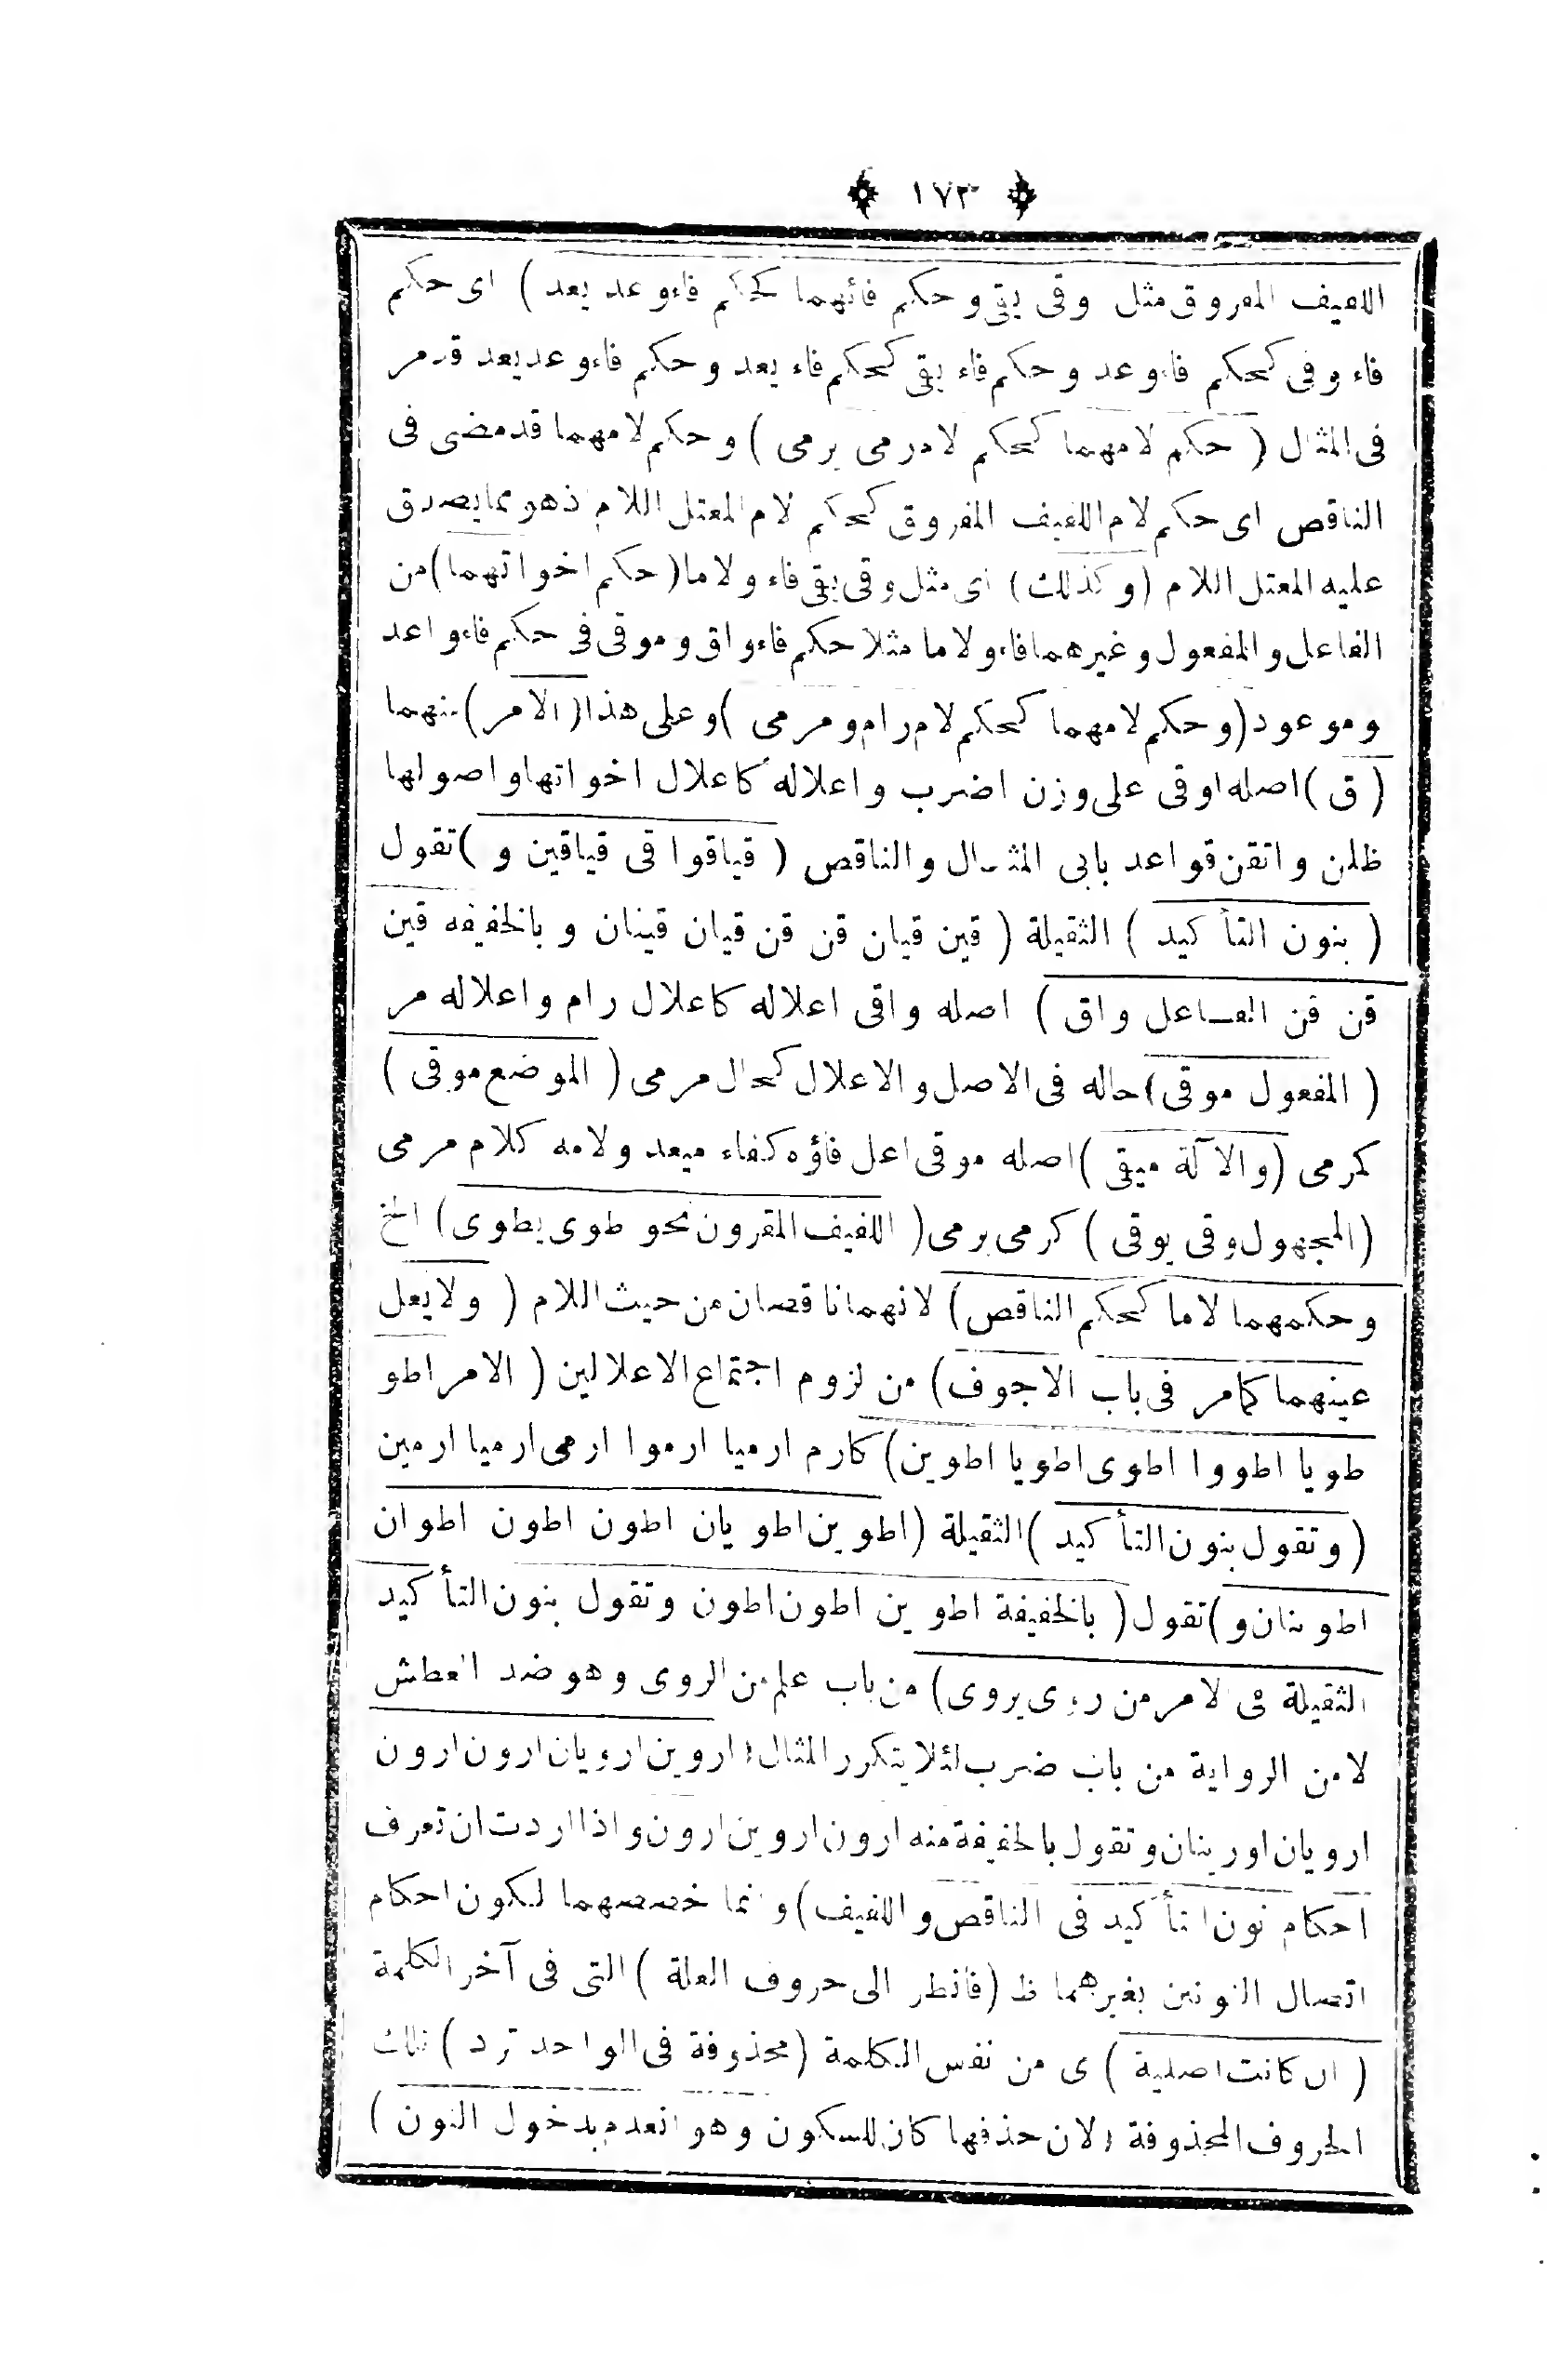 ﴿ ١٧٣ ﴾
اللفيف المفروق مثل وقى يقى وحكم فائهما كحكم فاء وعد يعد ) اى حكم
فاء وقى كحكم فاء وعد وحكم فاء يقى كحكم فاء يعد وحكم فاء وعد يعد قد مر
فى المثال ( حكم لامهما كحكم لام رمى يرمى ) وحكم لامهما قد مضى فى
الناقص اى حكم لام اللفيف المفروق كحكم لام المعتل اللام اذ هو مما يصدق
عليه المعتل اللام ( وكذلك ) اى مثل وقى يقى فاء ولاما ( حكم اخواتهما ) من
الفاعل والمفعول وغيرهما فاء ولاما مثلا حكم فاء واق وموقى فى حكم فاء واعد
وموعود ( وحكم لامهما كحكم لام رام ومرمى ) وعلى هذا ( الامر ) منهما
( ق ) اصله اوقى على وزن اضرب واعلاله كاعلال اخواتها واصولها
ظلن واتقن قواعد بابى المثال والناقص ( قيا قوا قى قيا قين و ) تقول
( بنون التأكيد ) الثقيلة ( قين قيان قن قن قيان قينان وبالخفيفه قين
قن قن الفاعل واق ) اصله واقى اعلاله كاعلال رام واعلاله مر
( المفعول موقى ) حاله فى الاصل والاعلال كحال مرمى ( الموضع موقى )
كرمى ( والآلة ميقى ) اصله موقى اعل فاؤه كفاء ميعد ولامه كلام مرمى
( المجهول وقى يوقى ) كرمى يرمى ( اللفيف المقرون نحو طوى يطوى ) الخ
وحكمهما لاما كحكم الناقص ) لانهما ناقصان من حيث اللام ( ولا يعل
عينهما كمامر فى باب الاجوف ) من لزوم اجتماع الاعلالين ( الامر اطو
طويا اطووا اطوى اطويا اطوين ) كارم ارميا ارموا ارمى ارميا ارمين
( وتقول بنون التأكيد ) الثقيلة ( اطوين اطويان اطون اطون اطوان
اطوينان و ) تقول ( بالخفيفة اطوين اطون اطون وتقول بنون التأكيد
الثقيلة فى الامر من روى يروى ) من باب علم من الروى وهو ضد العطش
لا من الرواية من باب ضرب لئلا يتكرر المثال ( اروين ارويان ارون ارون
ارويان اورينان وتقول بالخفيفة منه ارون اروين ارون واذا اردت ان تعرف
احكام نون التأكيد فى الناقص واللفيف ) وانما خصصهما لكون احكام
اتصال النونين بغيرهما ظ ( فانظر الى حروف العلة ) التى فى آخر الكلمة
( ان كانت اصلية ) اى من نفس الكلمة ( محذوفة فى الواحد ترد ) تلك
الحروف المحذوفة ( لان حذفها كان للسكون وهو انعدم بدخول النون )